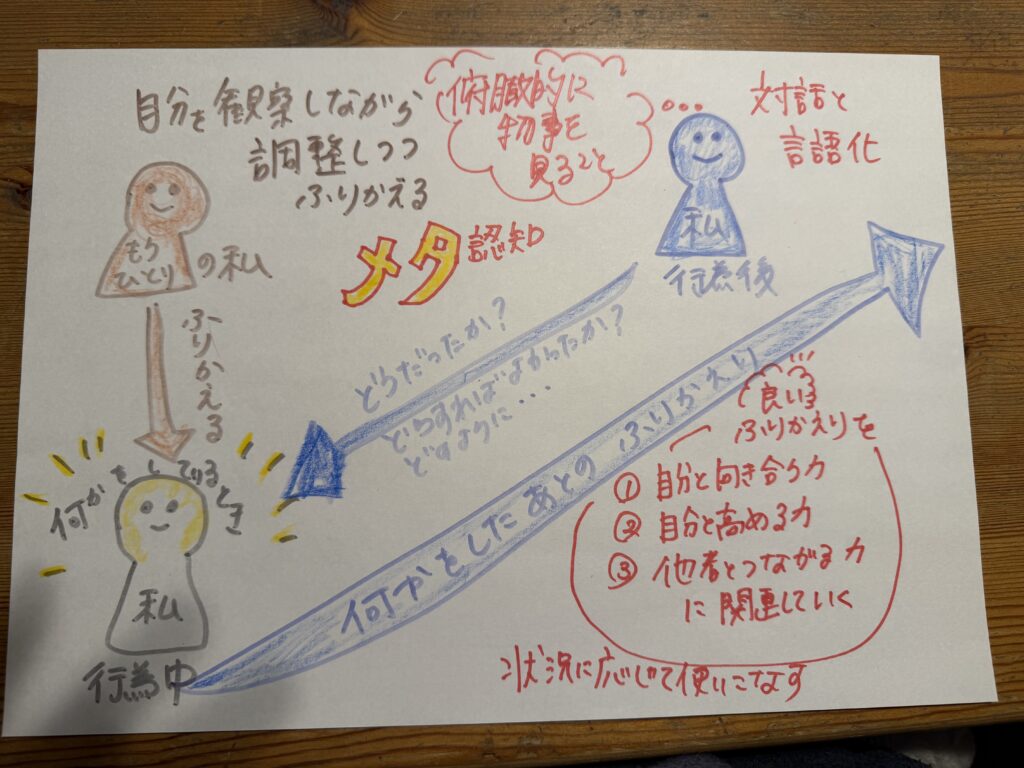 自分を観察しながら
調整しつつ
ふりかえる
俯瞰的に
物事を
見ること
対話と
言語化
もう
ひとり
の私
メタ認知
私
行為後
ふりかえる
どうだったか?
どうすればよかったか?
どのように・・
何かをしてるとき
私
行為中
何かをしたあとの ふりかえり
良い
ふりかえりを
① 自分と向き合う力
② 自分を高める力
③ 他者とつながる力
に関連していく
状況に応じて使いこなす